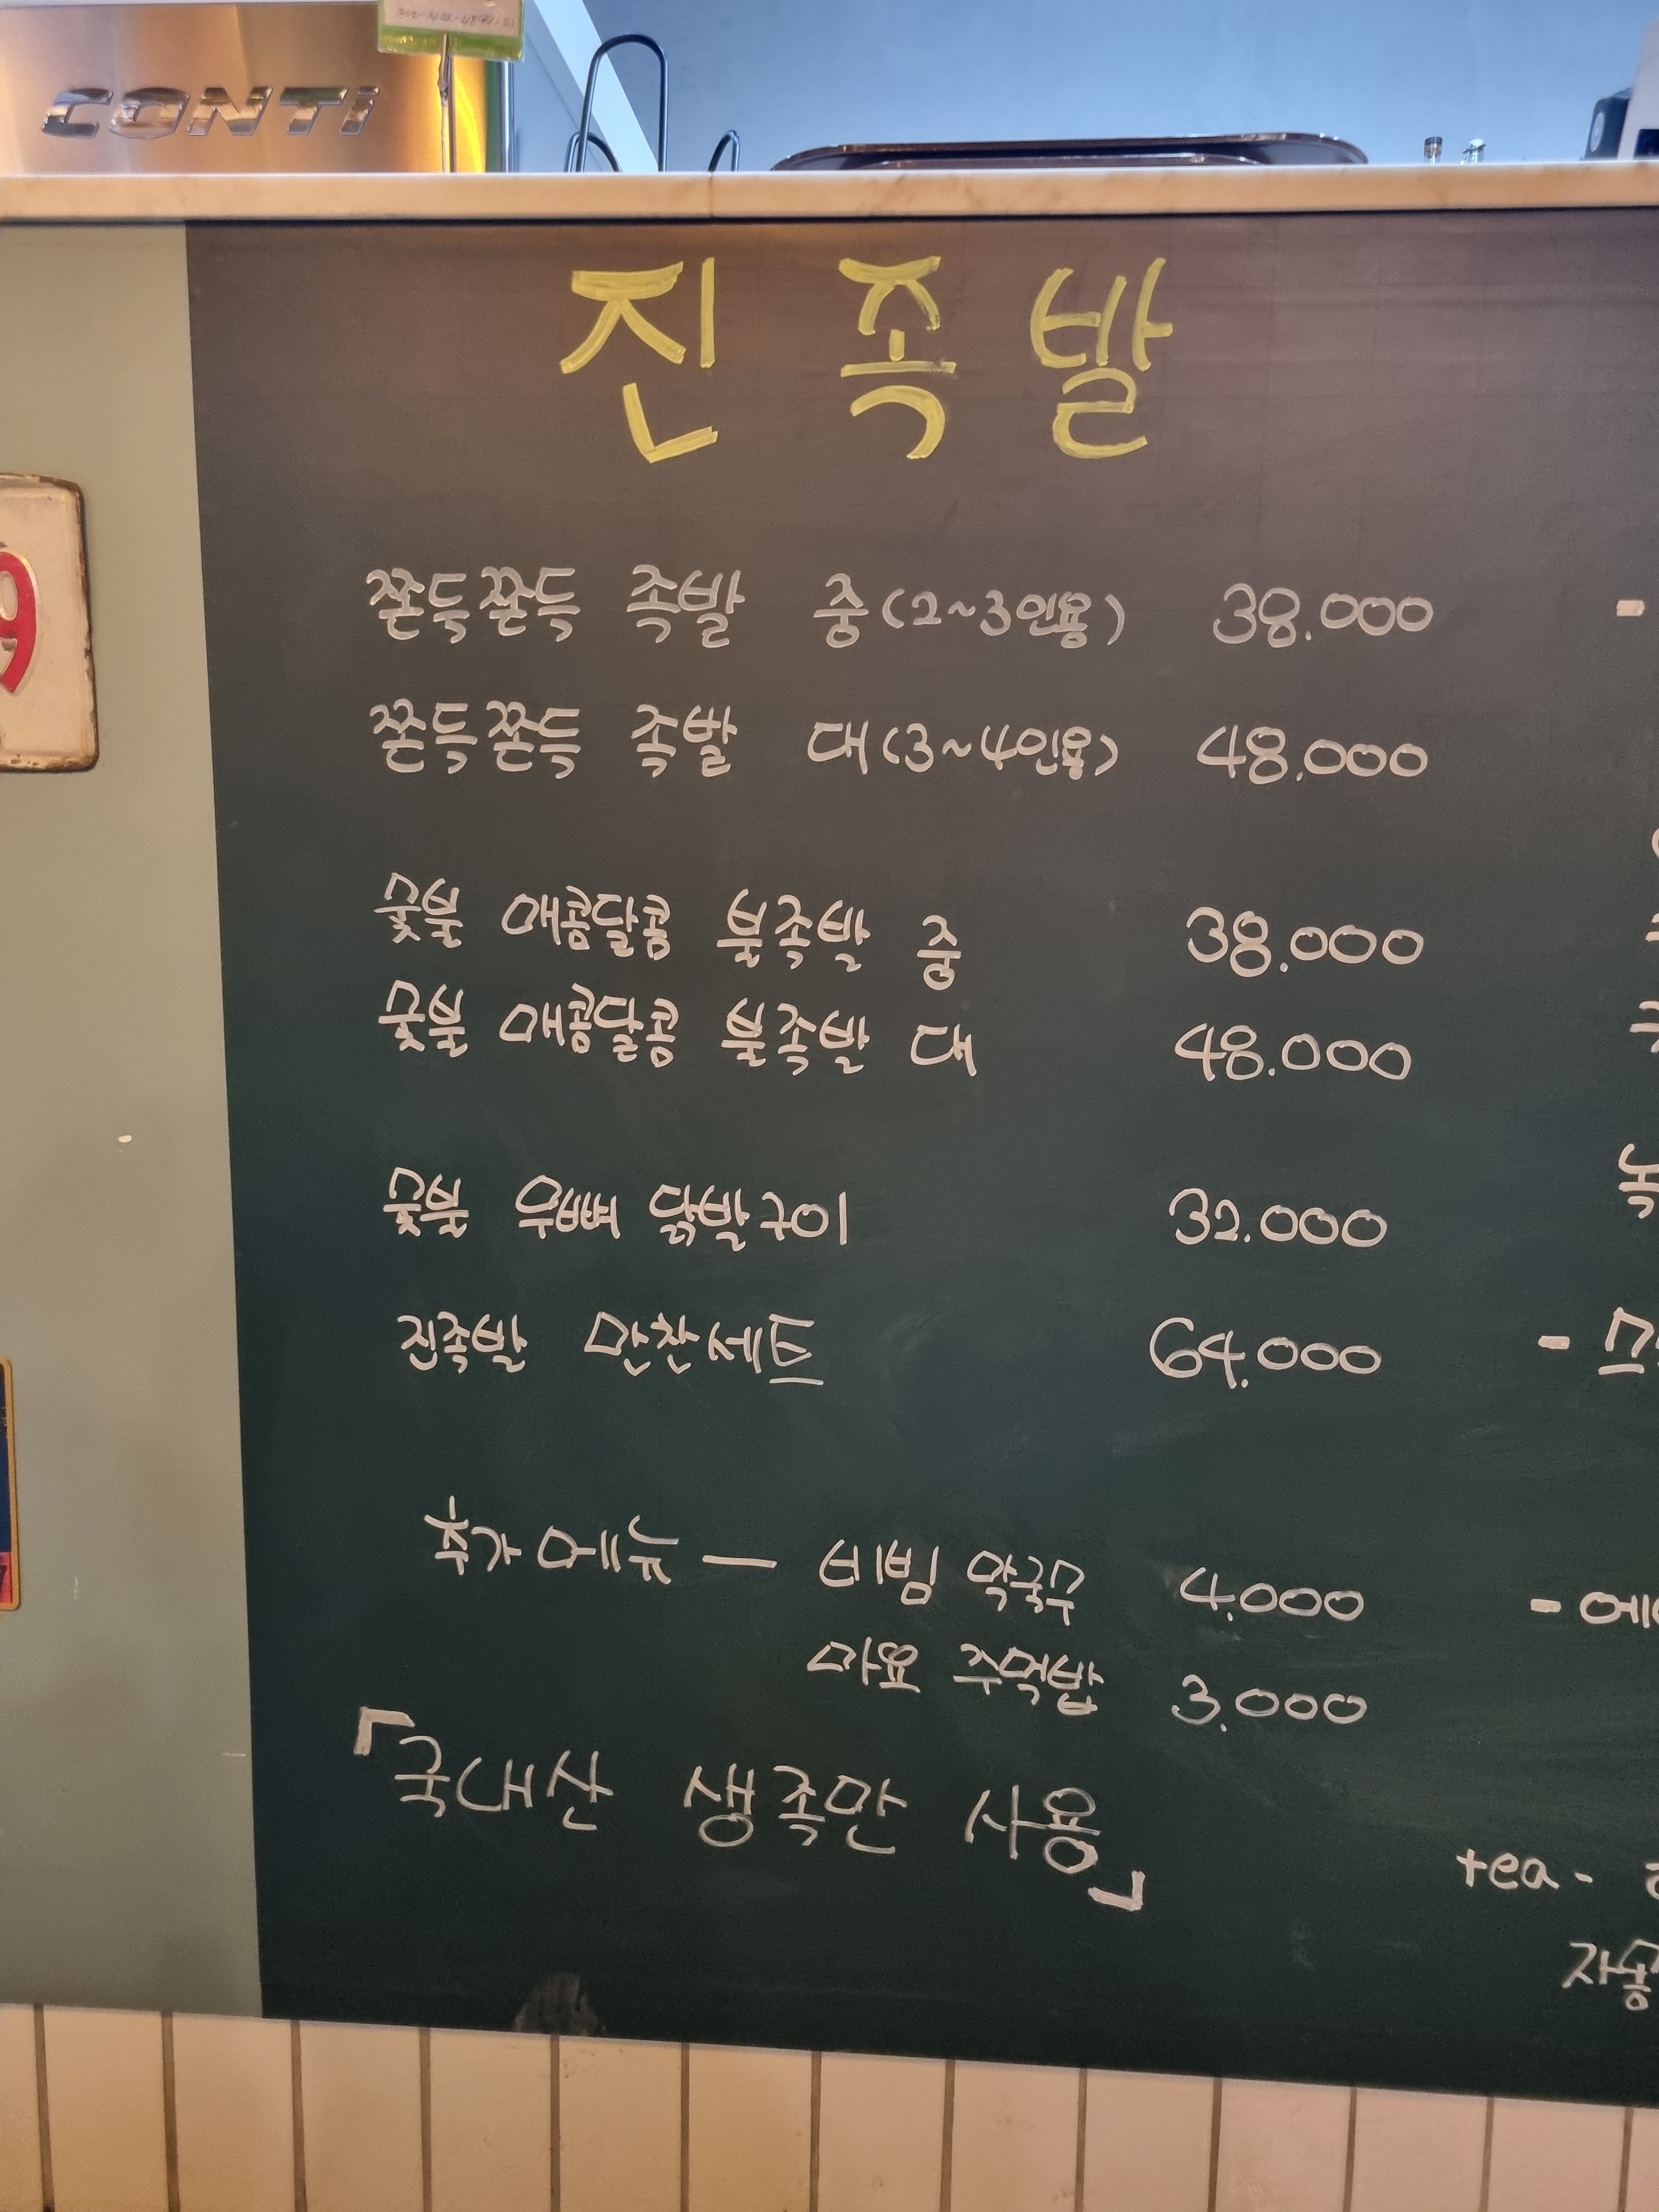 CONTI
진족발
쫀득쫀득 족발 중(2~3인용) 38.000 -
쫀득쫀득 족발 대(3~4인용) 48.000
숯불 매콤달콤 불족발 중 38.000
숯불 매콤달콤 불족발 대 48.000
숯불 무뼈 닭발구이 32.000
진족발 만찬세트 64.000 -
추가메뉴 — 비빔 막국수 4.000 -
마요 주먹밥 3.000
「국내산 생족만 사용」
tea-
자몽
9